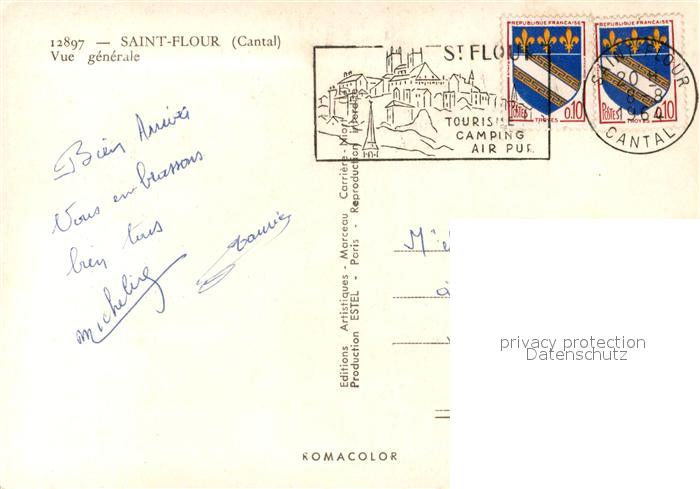 12897 — SAINT-FLOUR (Cantal)
Vue générale
ST FLOUR
TOURISME
CAMPING
AIR PUR
REPUBLIQUE FRANÇAISE
POSTES
TROYES
0.10
REPUBLIQUE FRANÇAISE
POSTES
TROYES
0.10
SAINT-FLOUR
20 H
8 - 8
1964
CANTAL
Bien Arrivés
Vous embrassons
bien tous
Micheline
Editions Artistiques - Marceau Carrière-Miori
Production ESTEL - Paris - Reproduction interdite
privacy protection
Datenschutz
ROMACOLOR